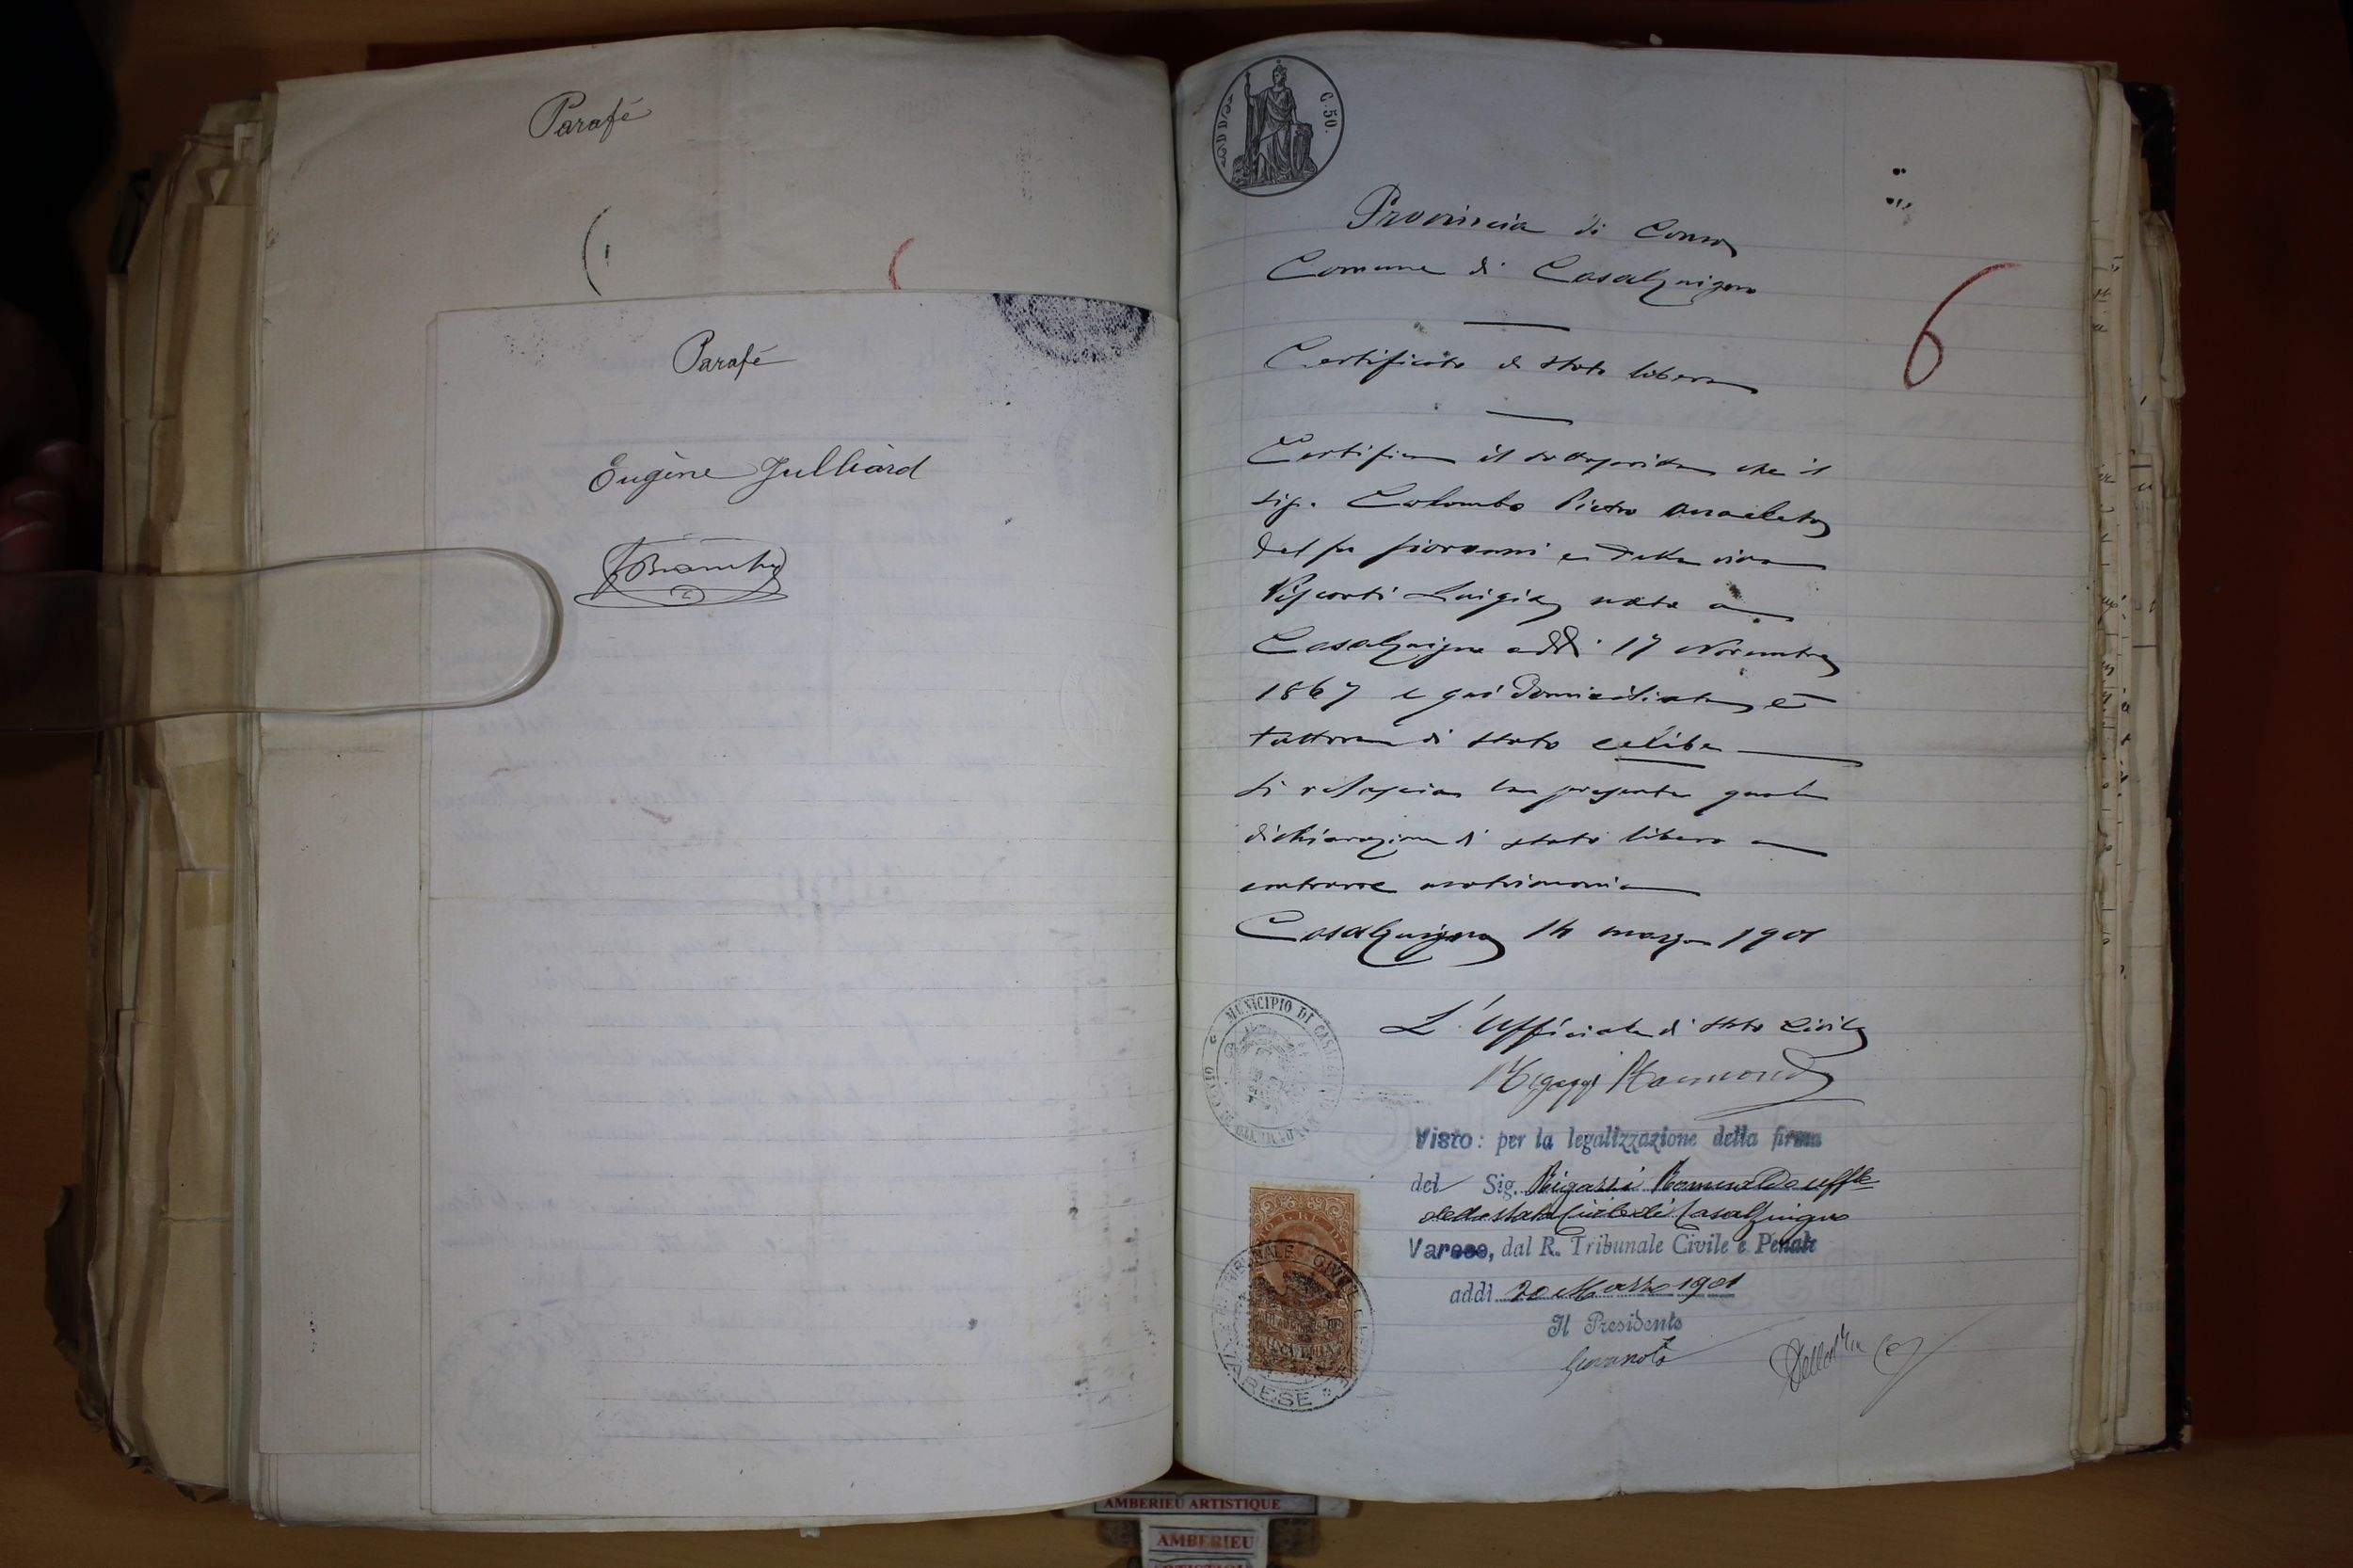 Parafé
Parafé
Eugène Julliard
C. 50.
Provincia di Como
Comune di Casalzuigno
Certificato di stato libero
6
Certifica il sottoscritto che il
sig. Colombo Pietro Anacleto
del fu Giovanni e della viva
Visconti Luigia nato a
Casalzuigno addì 17 Novembre
1867 e qui domiciliato è
tuttora di stato celibe
Si rilascia la presente quale
dichiarazione di stato libero a
contrarre matrimonio
Casalzuigno 14 marzo 1901
L'Ufficiale di Stato Civile
MUNICIPIO DI CASALZUIGNO
Visto: per la legalizzazione della firma
del Sig. Rigazzi Romualdo uffle
dello stato Civile di Casalzuigno
Varese, dal R. Tribunale Civile e Penale
addì 20 Marzo 1901
Il Presidente
TRIBUNALE CIVILE E PENALE
VARESE
AMBERIEU ARTISTIQUE
AMBERIEU
ARTISTIQUE